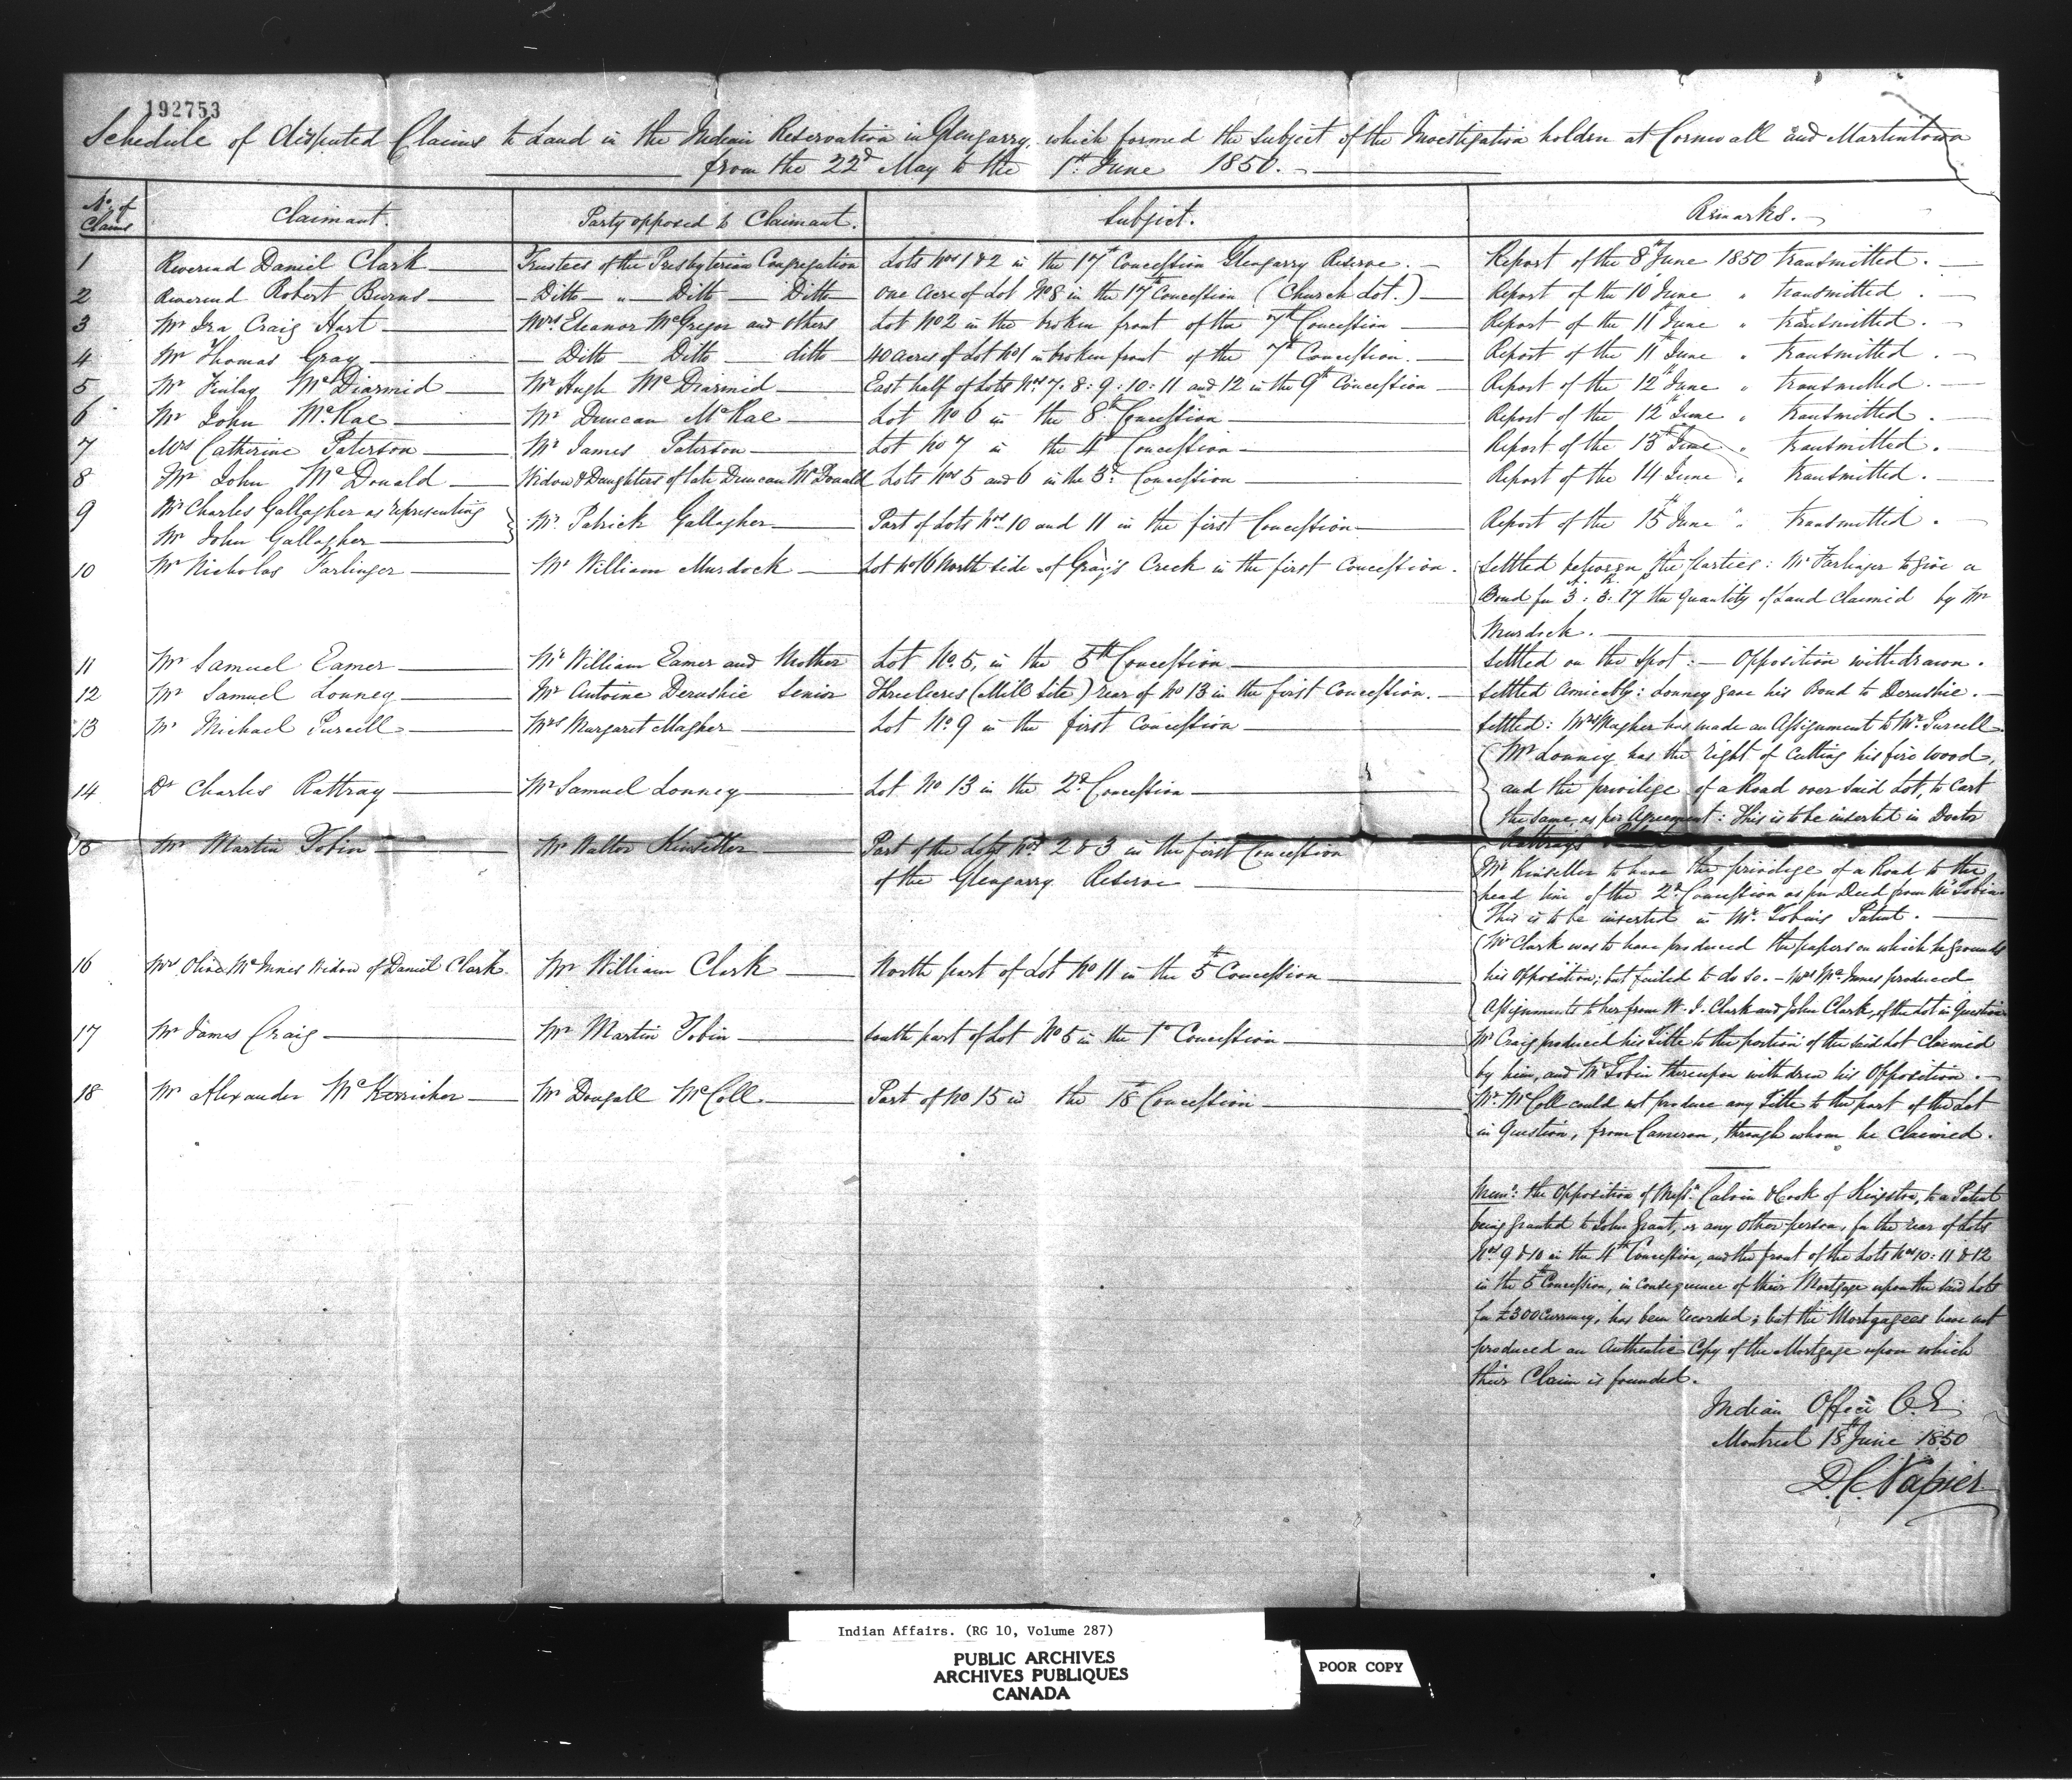 192753
Schedule of disputed Claims to Land in the Indian Reservation in Glengarry, which formed the subject of the Investigation holden at Cornwall and Martintown
from the 22d May to the 1st June 1850.
No. of Claims | Claimant. | Party opposed to Claimant. | Subject. | Remarks.
1 Reverend Daniel Clark Trustees of the Presbyterian Congregation Lots Nos 1 & 2 in the 17th Concession Glengarry Reserve. Report of the 8th June 1850 transmitted.
2 Reverend Robert Burns Ditto " Ditto Ditto One Acre of Lot No 8 in the 17th Concession (Church Lot.) Report of the 10th June " transmitted.
3 Mr Ira Craig Hart Mrs Eleanor McGregor and others Lot No 2 in the broken front of the 7th Concession Report of the 11th June " transmitted.
4 Mr Thomas Gray Ditto Ditto ditto 40 acres of Lot No 1 in broken front of the 7th Concession. Report of the 11th June " transmitted.
5 Mr Finlay McDiarmid Mr Hugh McDiarmid East half of Lots Nos 7: 8: 9: 10: 11 and 12 in the 9th Concession Report of the 12th June " transmitted.
6 Mr John McRae Mr Duncan McRae Lot No 6 in the 8th Concession Report of the 12th June " transmitted.
7 Mrs Catherine Paterson Mr James Paterson Lot No 7 in the 4th Concession Report of the 13th June " transmitted.
8 Mr John McDonald Widow & Daughters of late Duncan McDonald Lots Nos 5 and 6 in the 3d Concession Report of the 14 June " transmitted.
9 Mr Charles Gallagher as representing
Mr John Gallagher Mr Patrick Gallagher Part of Lots Nos 10 and 11 in the first Concession Report of the 15th June " transmitted.
10 Mr Nicholas Farlinger Mr William Murdock Lot No 16 North side of Gray's Creek in the first Concession. Settled between the parties: Mr Farlinger to give a
A. R. P.
Bond for 3: 3: 17 the quantity of Land claimed by Mr
Murdock.
11 Mr Samuel Eamer Mr William Eamer and Mother Lot No. 5, in the 5th Concession Settled on the spot: — Opposition withdrawn.
12 Mr Samuel Lonney Mr Antoine Derushie Senior Three Acres (Mill Site) rear of No 13 in the first Concession. Settled Amicably: Lonney gave his Bond to Derushie.
13 Mr Michael Purcell Mrs Margaret Magher Lot No. 9 in the first Concession Settled: Mrs Magher has made an Assignment to Mr. Purcell.
14 Dr Charles Rattray Mr Samuel Lonney Lot No 13 in the 2d Concession Mr Lonney has the right of Cutting his fire wood,
and the privilege of a Road over said Lot, to Cart
the same, as per Agreement: This is to be inserted in Doctor
Rattrays
15 Mr Martin Tobin Mr Walter Kinseller Part of the Lots Nos 2 & 3 in the first Concession
of the Glengarry Reserve Mr Kinseller to have the privilege of a Road to the
head line of the 2d Concession as per Deed from Mr Tobin
This is to be inserted in Mr. Tobin's Patent.
16 Mrs Olive McInnes Widow of Daniel Clark. Mr William Clark North part of Lot No 11 in the 5th Concession Mr Clark was to have produced the papers on which he grounds
his opposition; but failed to do so. — Mrs McInnes produced
Assignments to her from W. J. Clark and John Clark, of the Lot in Question
17 Mr James Craig Mr Martin Tobin South part of Lot No 5 in the 1st Concession Mr Craig produced his Title to the portion of the said Lot Claimed
by him, and Mr Tobin thereupon withdrew his Opposition.
18 Mr Alexander McKerricher Mr Dougall McColl Part of No 15 in the 18th Concession Mr. McColl could not produce any Title to the part of the Lot
in Question, from Cameron, through whom he Claimed.
Memo: the Opposition of Messrs Calvin & Cook of Kingston, to a Patent
being granted to John Grant, or any other person, for the rear of Lots
Nos 9 & 10 in the 4th Concession, and the front of the Lots Nos 10: 11 & 12
in the 5th Concession, in consequence of their Mortgage upon the said Lots
for £300 Currency, has been recorded; but the Mortgagees have not
produced an Authentic Copy of the Mortgage upon which
their Claim is founded.
Indian Office C.E.
Montreal 18th June 1850
D.C. Napier
Indian Affairs. (RG 10, Volume 287)
PUBLIC ARCHIVES
ARCHIVES PUBLIQUES
CANADA
POOR COPY